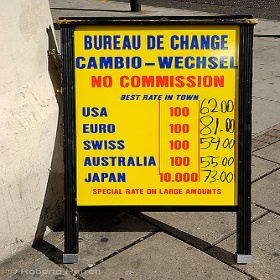 BUREAU DE CHANGE
CAMBIO-WECHSEL
NO COMMISSION
BEST RATE IN TOWN
USA 100 62.00
EURO 100 81.00
SWISS 100 54.00
AUSTRALIA 100 55.00
JAPAN 10.000 73.00
SPECIAL RATE ON LARGE AMOUNTS
© Roberto Herrett